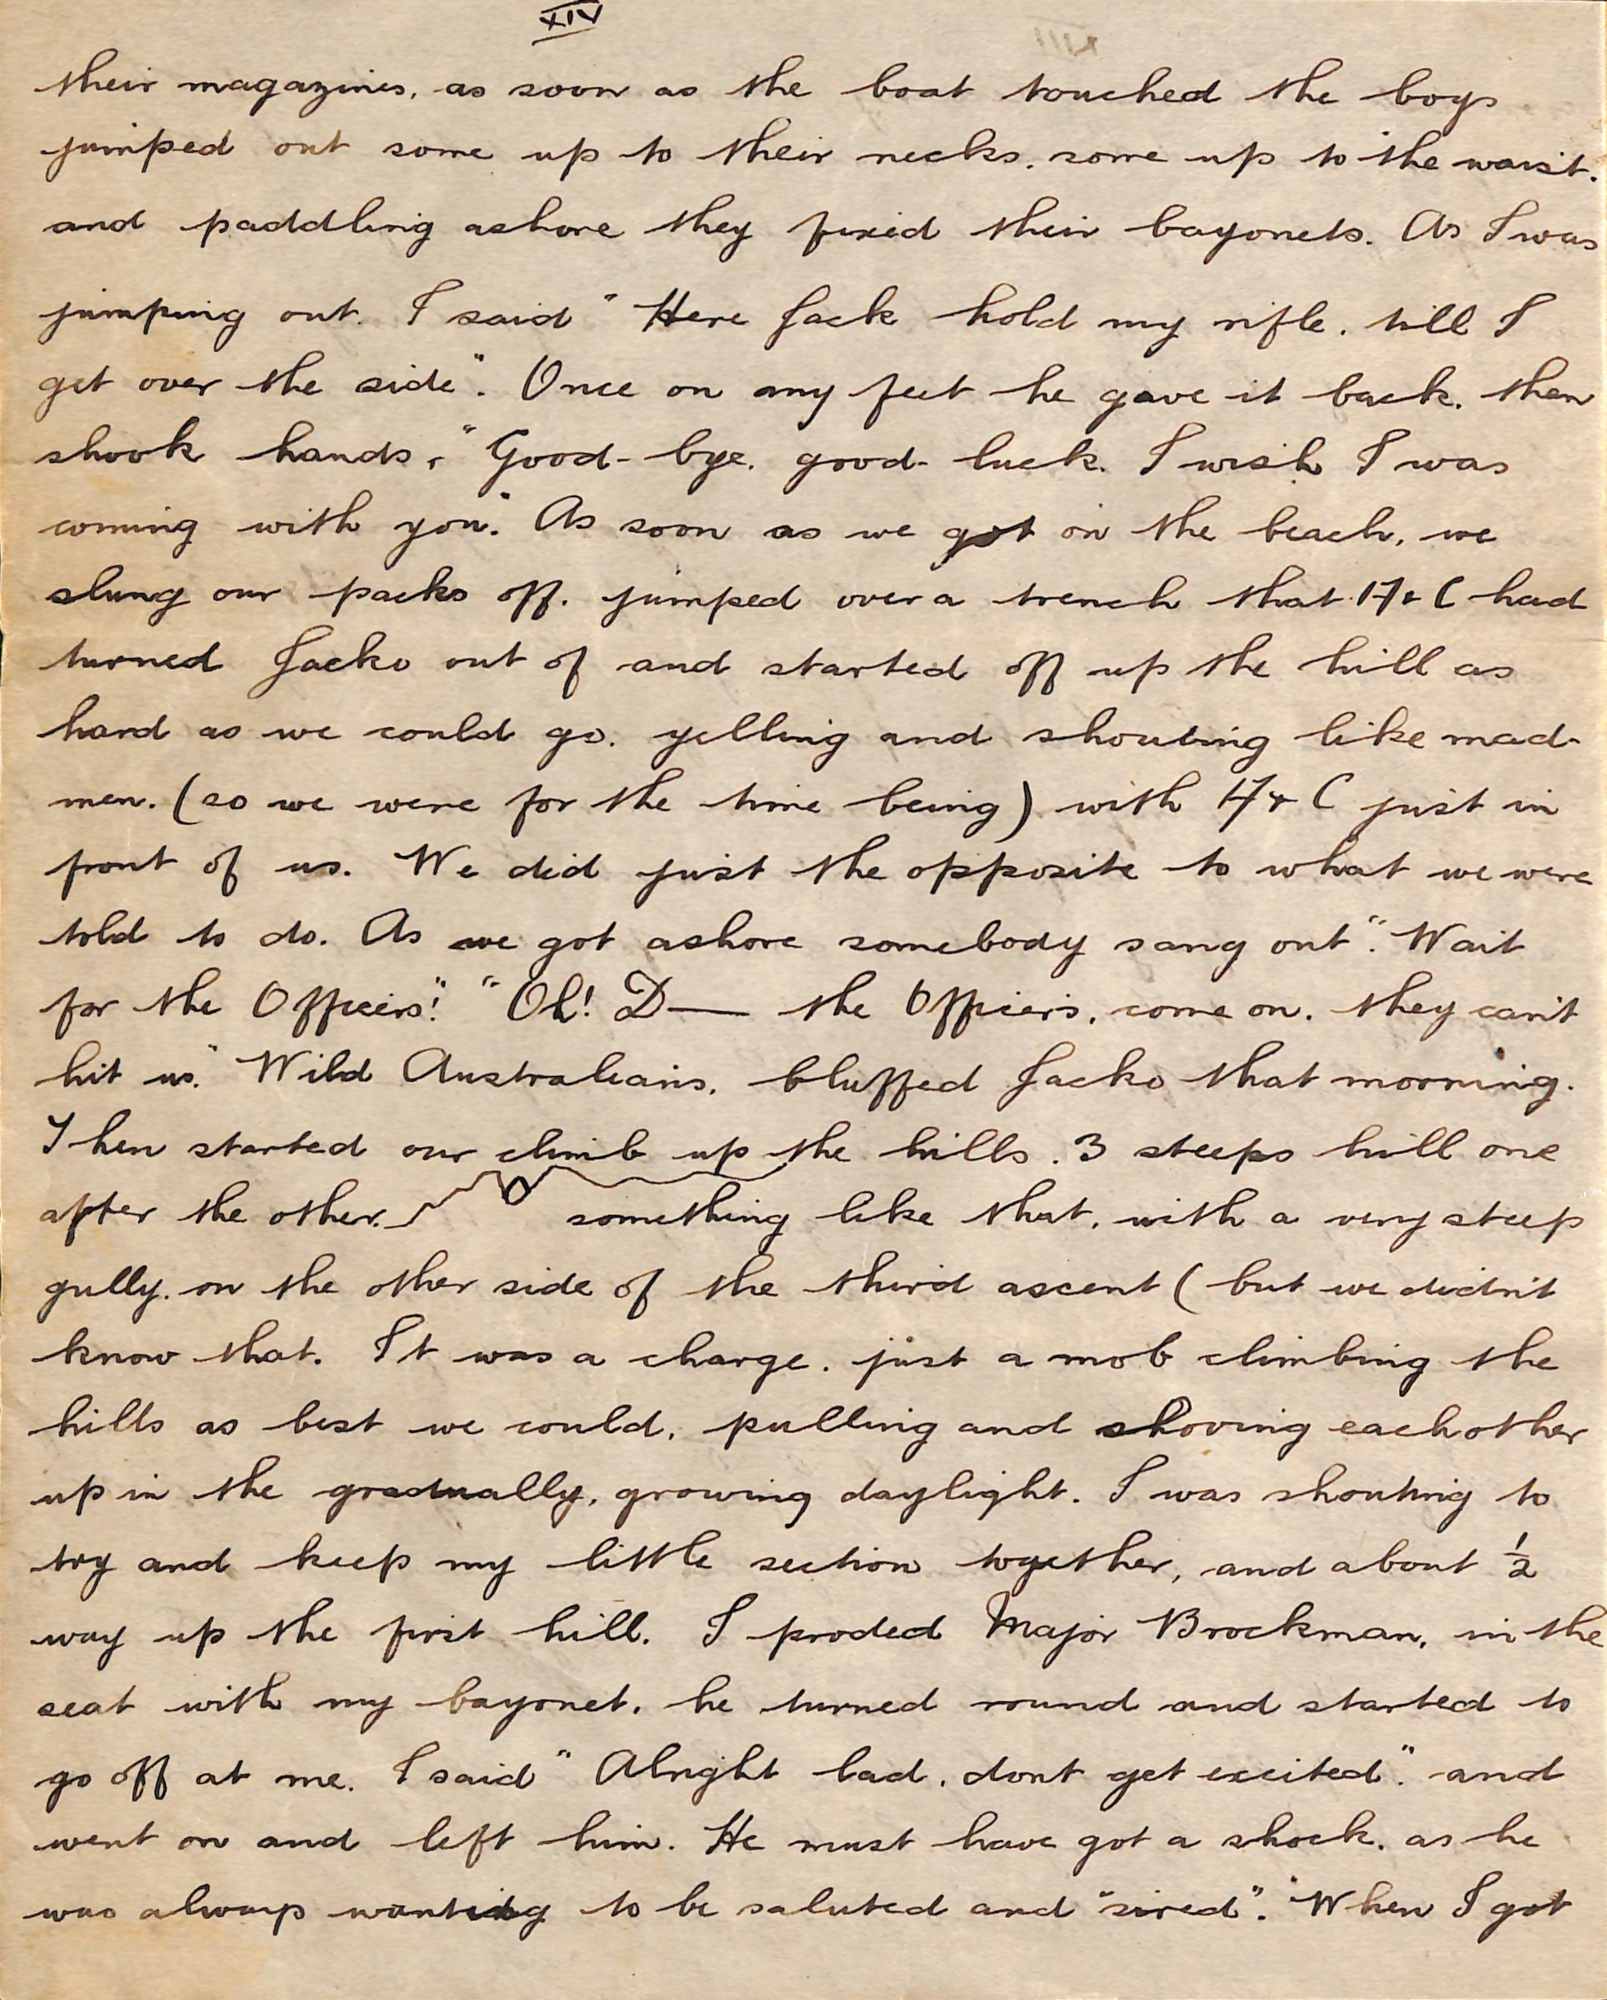 XIV
their magazines, as soon as the boat touched the boys
jumped out some up to their necks, some up to the waist.
and paddling ashore they fixed their bayonets. As I was
jumping out. I said "Here Jack hold my rifle. till I
get over the side". Once on my feet he gave it back. then
shook hands, "Good-bye. good-luck. I wish I was
coming with you". As soon as we got on the beach, we
slung our packs off. jumped over a trench that A & C had
turned Jacko out of and started off up the hill as
hard as we could go. yelling and shouting like mad-
men. (so we were for the time being) with A & C just in
front of us. We did just the opposite to what we were
told to do. As we got ashore somebody sang out". Wait
for the Officers"! "Oh! D— the Officers, come on. they can't
hit us." Wild Australians, bluffed Jacko that morning.
Then started our climb up the hills. 3 steeps hill one
after the other. something like that, with a very steep
gully. on the other side of the third ascent (but we didn't
know that. It was a charge. just a mob climbing the
hills as best we could, pulling and shoving each other
up in the gradually, growing daylight. I was shouting to
try and keep my little section together, and about ½
way up the first hill. I proded Major Brockman, in the
seat with my bayonet. he turned round and started to
go off at me. I said "Alright lad, dont get excited". and
went on and left him. He must have got a shock. as he
was always wanting to be saluted and "sired". "When I got